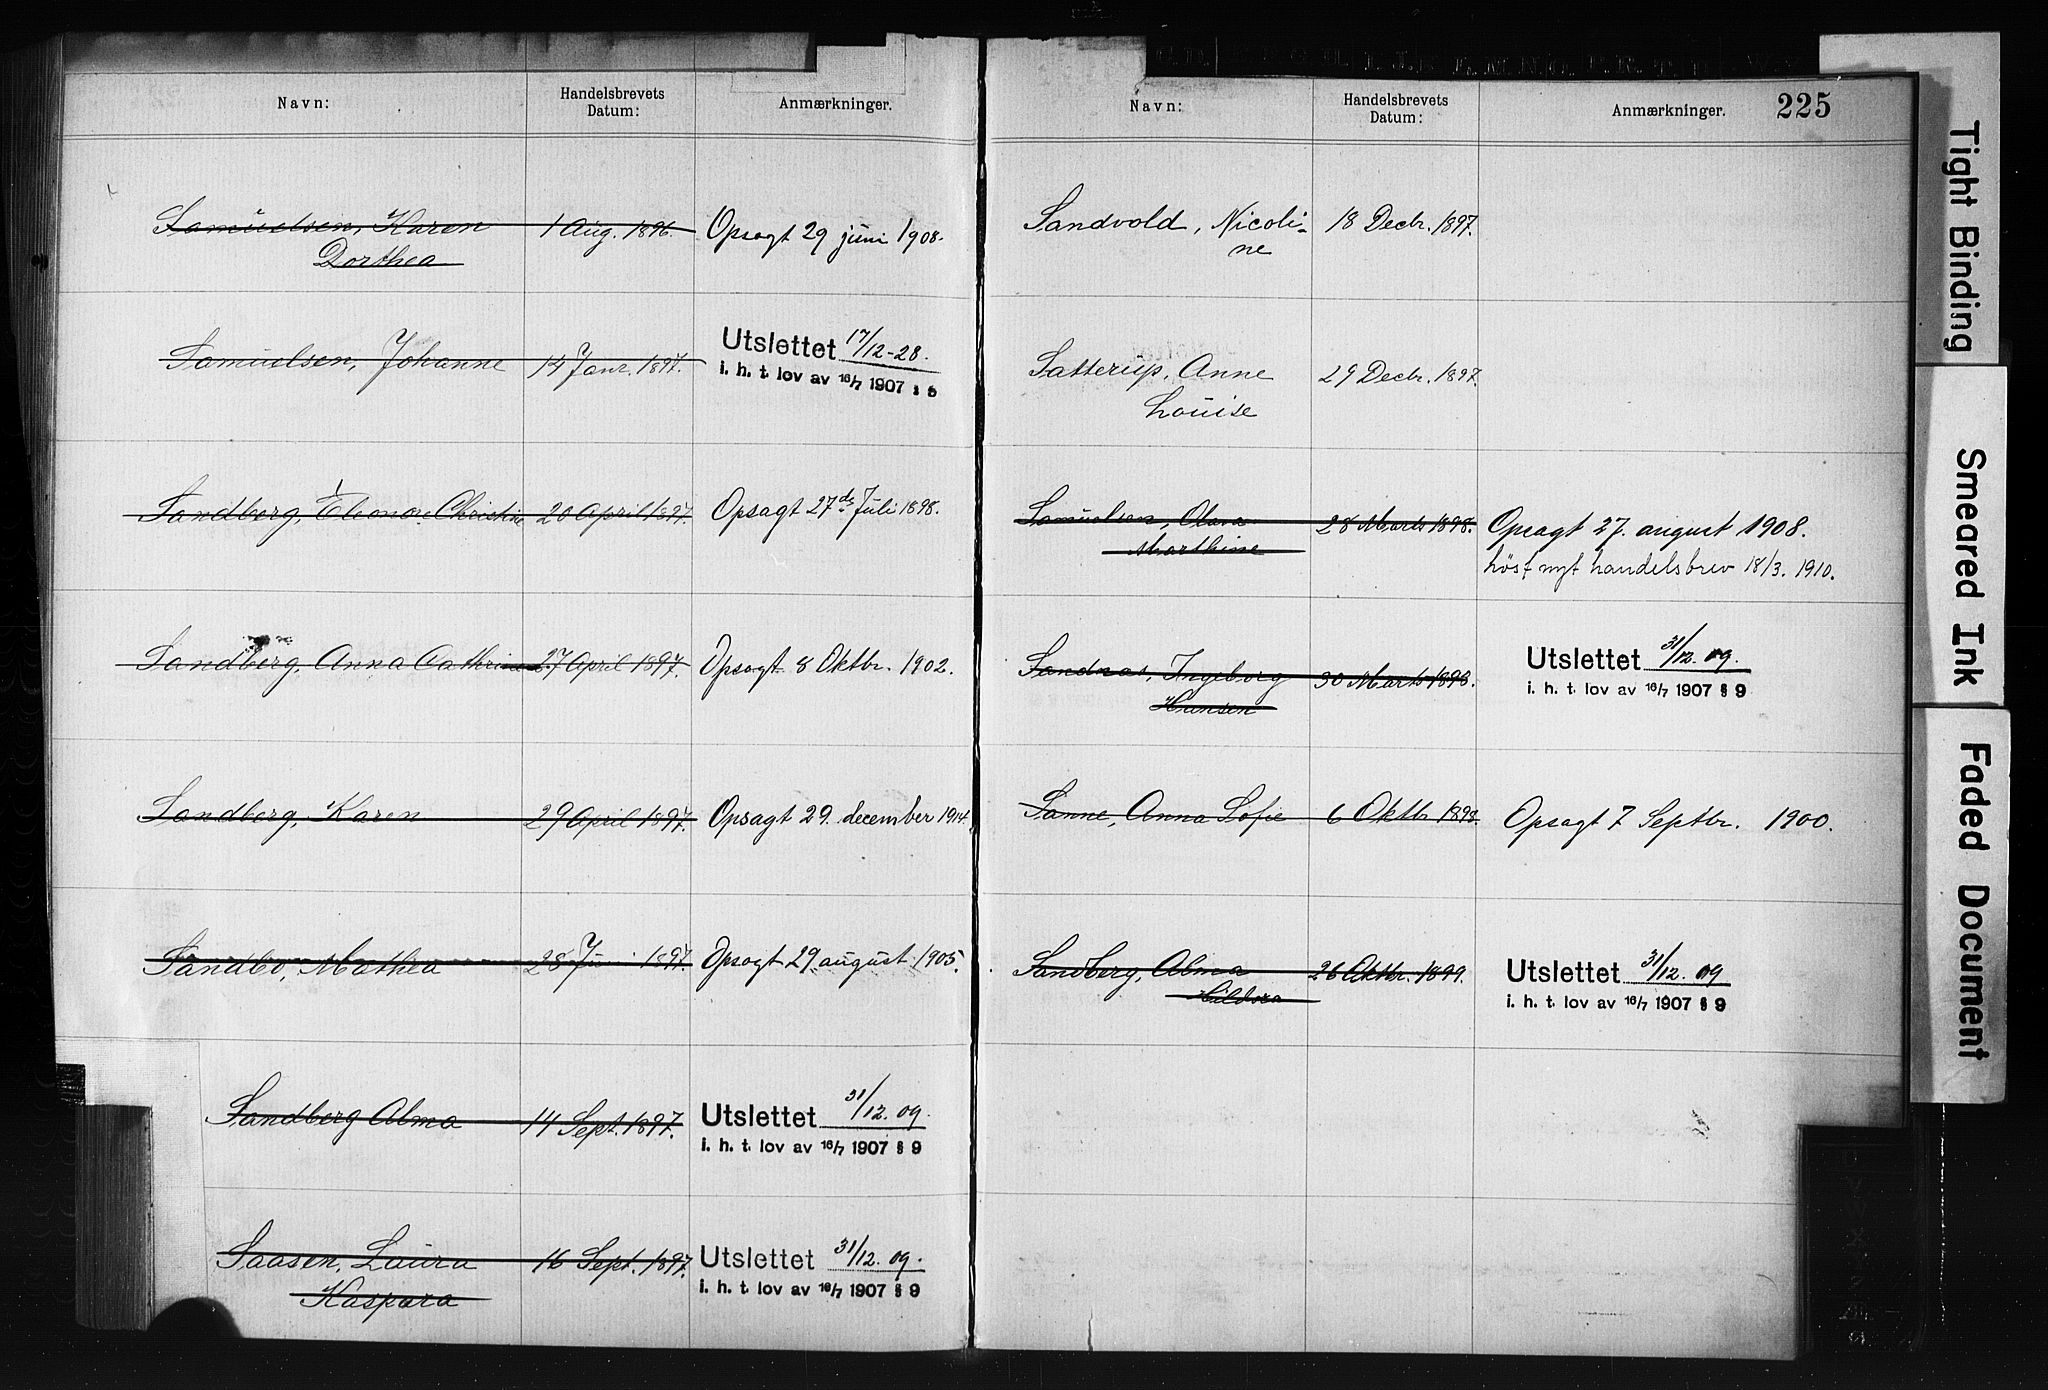 Navn: Handelsbrevets Datum: Anmærkninger.
Samuelsen, Karen 1 Aug. 1896. Opsagt 29 juni 1908.
Dorthea
Samuelsen, Johanne 14 Janr. 1897. Utslettet 17/12-28.
i. h. t. lov av 16/7 1907 §
Sandberg, Eleonore Christine 20 April 1897. Opsagt 27de Juli 1898.
Sandberg, Anna Cathrine 27 April 1897. Opsagt 8 Oktbr. 1902.
Sandberg, Karen 29 April 1897. Opsagt 29. december 1914.
Sandbo, Mathea 28 Ju 1897. Opsagt 29 august 1905.
Sandberg Alma 14 Sept. 1897. Utslettet 31/12. 09.
i. h. t. lov av 16/7 1907 § 9
Saasen, Laura 16 Sept. 1897. Utslettet 31/12. 09.
Kaspara i. h. t. lov av 16/7 1907 § 9
Navn: Handelsbrevets Datum: Anmærkninger. 225
Sandvold, Nicoli- 18 Decbr. 1897.
ne
Satterup, Anne 29 Decbr. 1897.
Louise
Samuelsen, Olava 28 Marts 1898. Opsagt 27. august 1908.
Marthine løst nyt handelsbrev 18/3. 1910.
Sandnas, Ingeborg 30 Marts 1898. Utslettet 31/12. 09.
Hansen i. h. t. lov av 16/7 1907 § 9
Sanne, Anna Sofie 6 Oktbr 1898. Opsagt 7 Septbr. 1900.
Sandberg, Alma 26 Oktbr. 1899. Utslettet 31/12. 09
Hildora i. h. t. lov av 16/7 1907 § 9
Tight Binding
Smeared Ink
Faded Document